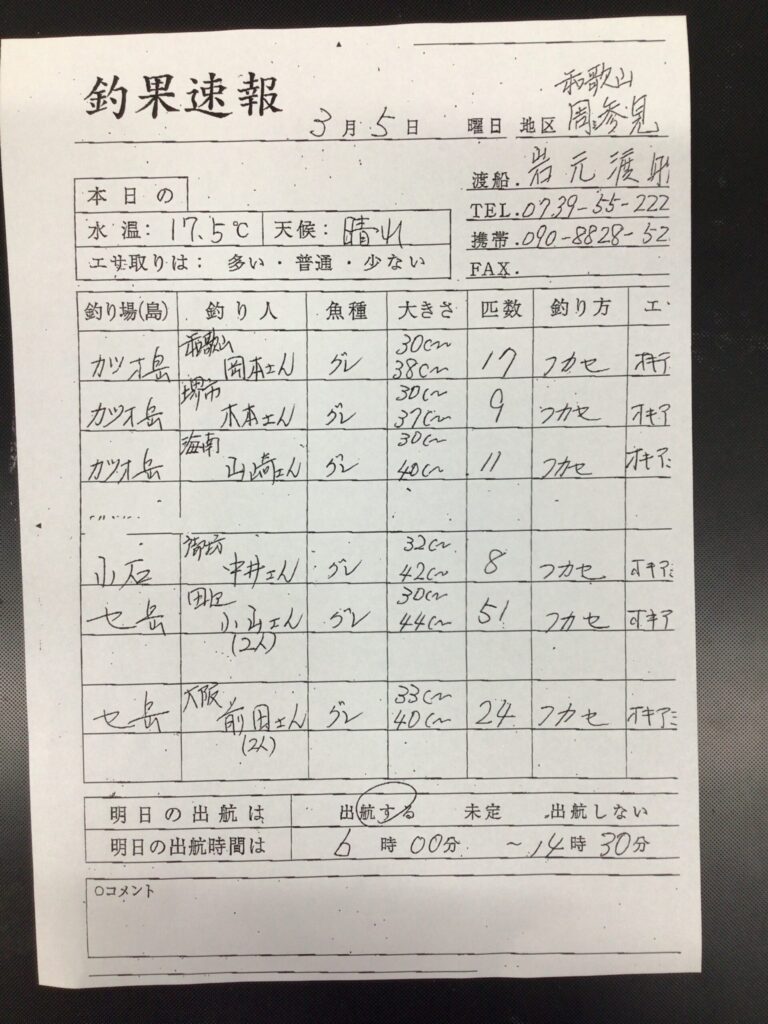 釣果速報
3月5日 曜日 地区 和歌山 周参見
渡船. 岩元渡船
TEL.0739-55-222
携帯.090-8828-52
FAX.
本日の
水温: 17.5℃ 天候: 晴れ
エサ取りは: 多い・普通・少ない
釣り場(島) 釣り人 魚種 大きさ 匹数 釣り方 エ
カツオ島 和歌山 岡本さん グレ 30cm 38cm 17 フカセ オキア
カツオ島 堺市 木本さん グレ 30cm 37cm 9 フカセ オキア
カツオ島 海南 山崎さん グレ 30cm 40cm 11 フカセ オキアミ
小石 御坊 中井さん グレ 32cm 42cm 8 フカセ オキアミ
セ島 田辺 小山さん (2人) グレ 30cm 44cm 51 フカセ オキア
セ島 大阪 前田さん (2人) グレ 33cm 40cm 24 フカセ オキアミ
明日の出航は 出航する 未定 出航しない
明日の出航時間は 6時00分 ~14時30分
○コメント